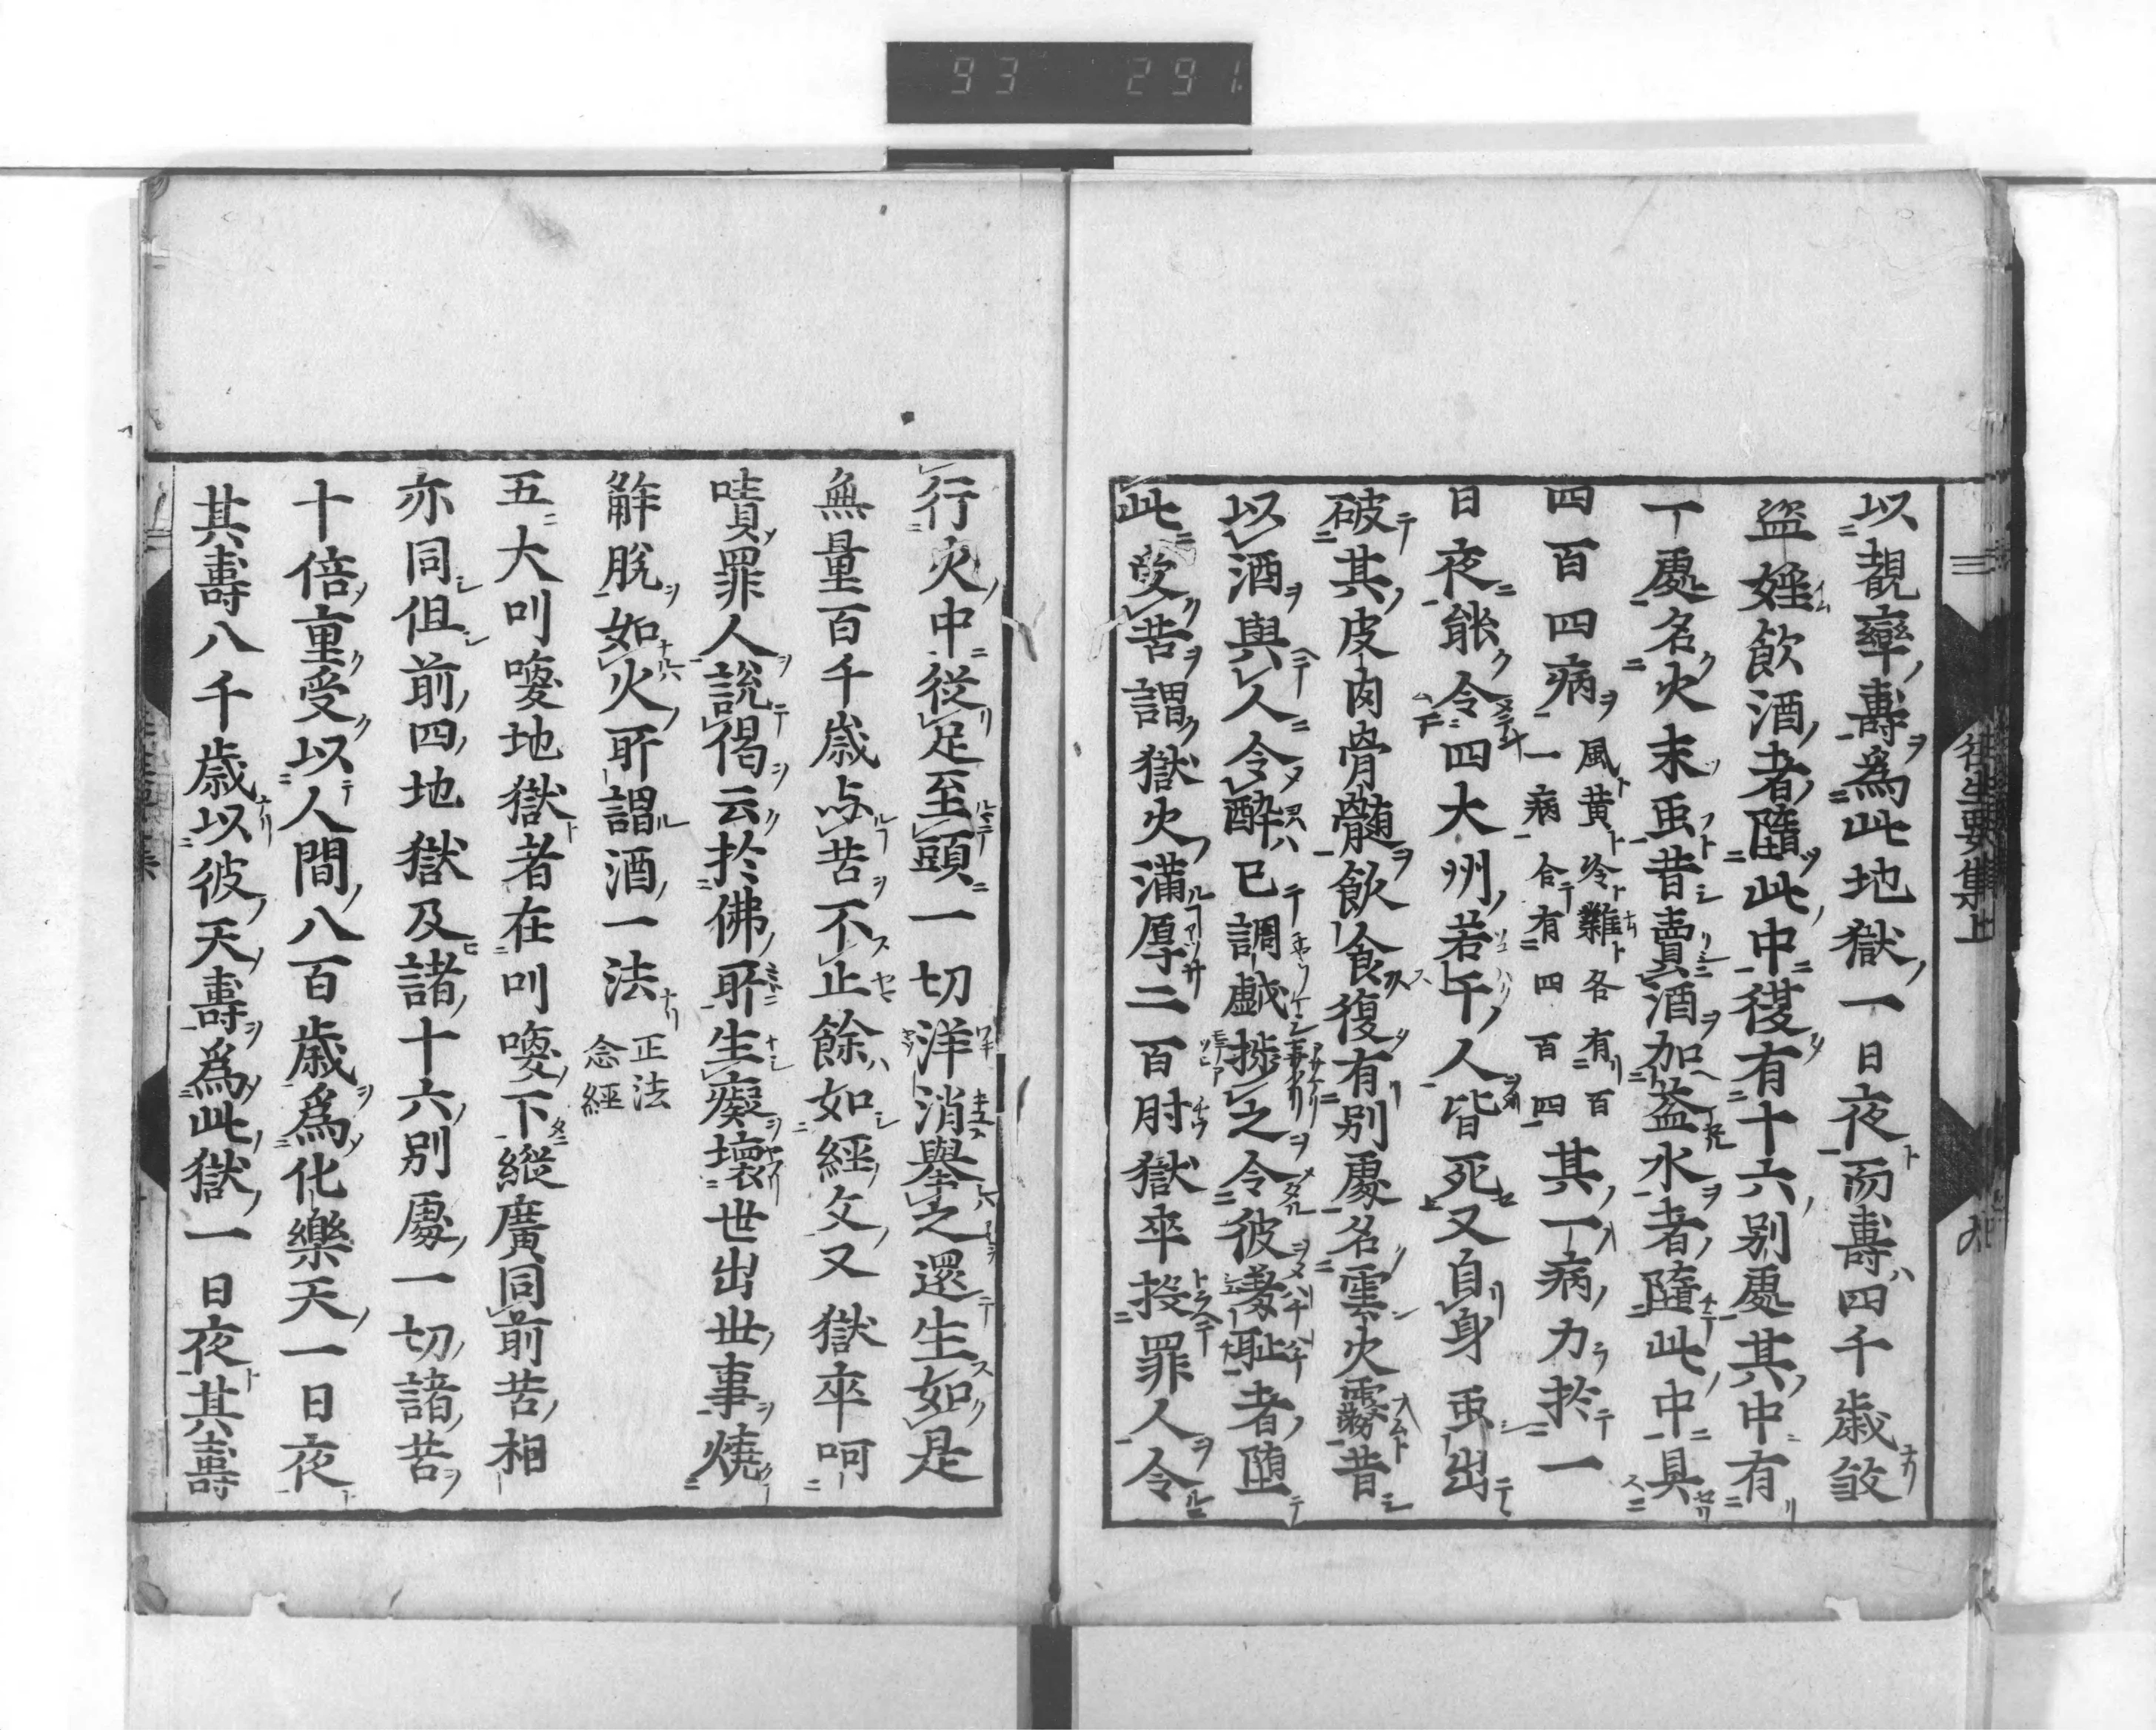 93 291
往生要集上
以覩率壽爲此地獄一日夜而壽四千歳殺
盗婬飲酒者墮此中復有十六別處其中有
一處名火末虫昔賣酒加益水者墮此中具
四百四病
風黄冷雜各有百
一病合有四百四
其一病力於一
日夜能令四大州若干人皆死又自身虫出
破其皮肉骨髓飲食復有別處名雲火霧昔
以酒與人令醉已調戯捗之令彼羞恥者墮
此受苦謂獄火滿厚二百肘獄卒投罪人令
行火中從足至頭一切洋消擧之還生如是
無量百千歳与苦不止餘如經文又獄卒呵
嘖罪人説偈云於佛所生癡壞世出世事燒
解脱如火所謂酒一法
正法
念經
五大叫喚地獄者在叫喚下縱廣同前苦相
亦同但前四地獄及諸十六別處一切諸苦
十倍重受以人間八百歳爲化樂天一日夜
其壽八千歳以彼天壽爲此獄一日夜其壽